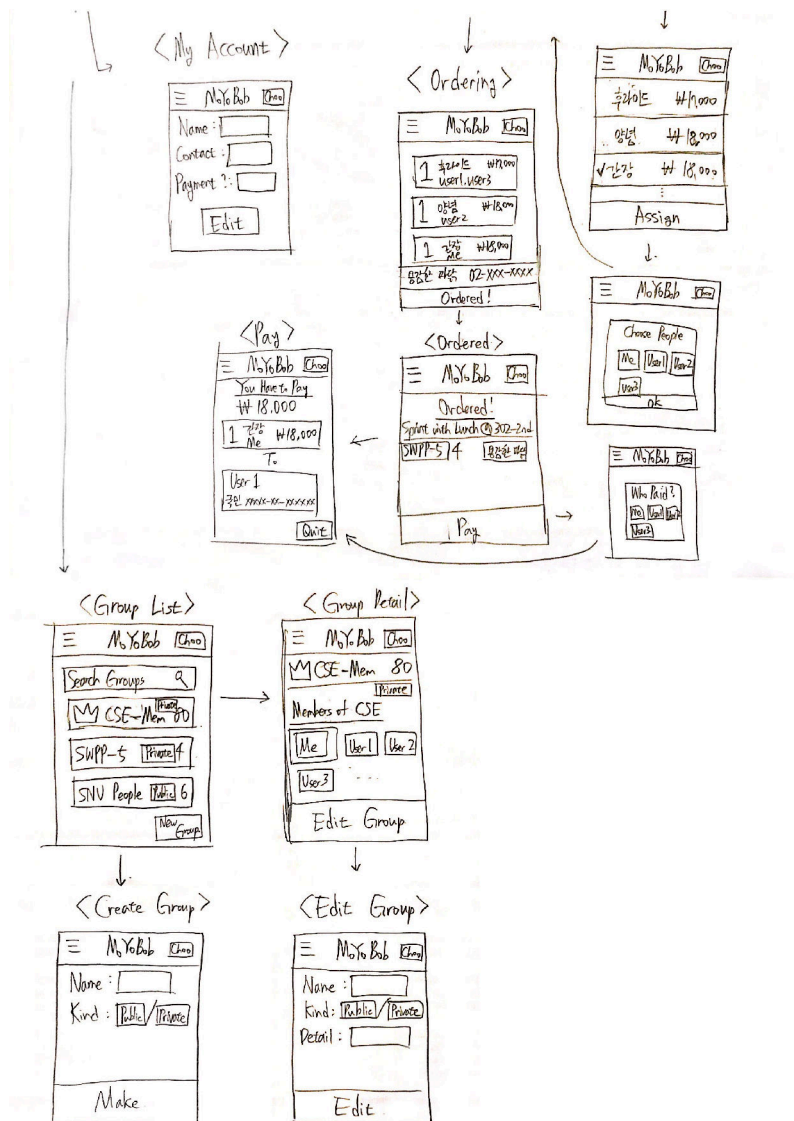 <My Account>
MoYoBob Choo
Name :
Contact :
Payment ? :
Edit
<Ordering>
MoYoBob Choo
1 후라이드 ₩17,000
user1, user3
1 양념 ₩18,000
user2
1 간장 ₩18,000
Me
용감한 파닭 02-xxx-xxxx
Ordered!
MoYoBob Choo
후라이드 ₩17,000
양념 ₩18,000
✓간장 ₩18,000
⋮
Assign
MoYoBob Choo
Choose People
Me User1 User2
User3
OK
<Pay>
MoYoBob Choo
You Have to Pay
₩18,000
1 간장 ₩18,000
Me
To
User 1
국민 xxxxx-xx-xxxxxx
Quit
<Ordered>
MoYoBob Choo
Ordered!
Sprint with Lunch @302-2nd
SWPP-5 4 용감한 파닭
Pay
MoYoBob Choo
Who Paid?
Me User1 User2
User3
<Group List>
MoYoBob Choo
Search Groups
CSE-Mem Private 80
SWPP-5 Private 4
SNV People Public 6
New Group
<Group Detail>
MoYoBob Choo
CSE-Mem 80
Private
Members of CSE
Me User1 User 2
User3 ....
Edit Group
<Create Group>
MoYoBob Choo
Name :
Kind : Public / Private
Make
<Edit Group>
MoYoBob Choo
Name :
Kind : Public / Private
Detail :
Edit